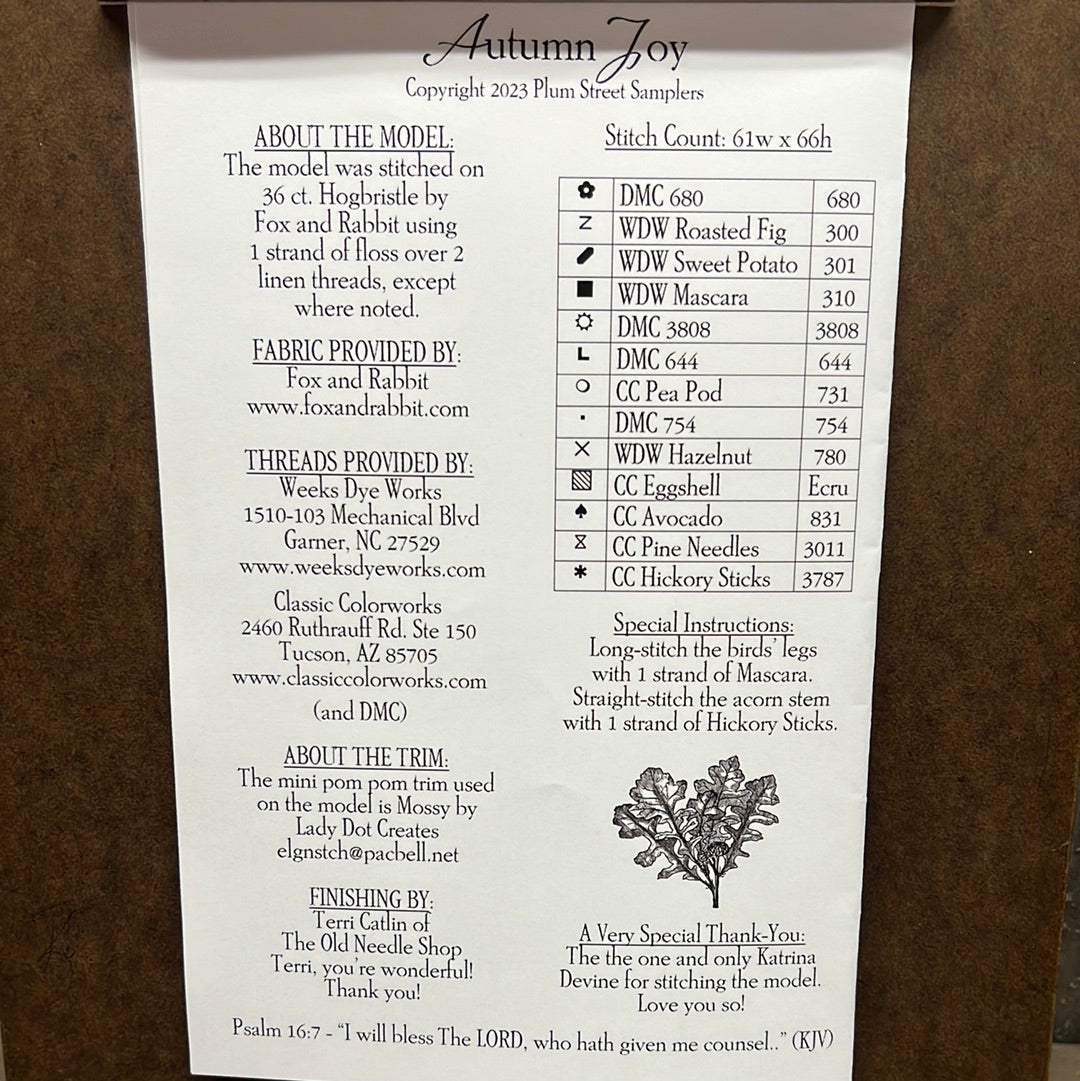 Autumn Joy
Copyright 2023 Plum Street Samplers
ABOUT THE MODEL:
The model was stitched on
36 ct. Hogbristle by
Fox and Rabbit using
1 strand of floss over 2
linen threads, except
where noted.
FABRIC PROVIDED BY:
Fox and Rabbit
www.foxandrabbit.com
THREADS PROVIDED BY:
Weeks Dye Works
1510-103 Mechanical Blvd
Garner, NC 27529
www.weeksdyeworks.com
Classic Colorworks
2460 Ruthrauff Rd. Ste 150
Tucson, AZ 85705
www.classiccolorworks.com
(and DMC)
ABOUT THE TRIM:
The mini pom pom trim used
on the model is Mossy by
Lady Dot Creates
elgnstch@pacbell.net
FINISHING BY:
Terri Catlin of
The Old Needle Shop
Terri, you're wonderful!
Thank you!
Stitch Count: 61w x 66h
DMC 680 680
Z WDW Roasted Fig 300
WDW Sweet Potato 301
■ WDW Mascara 310
DMC 3808 3808
L DMC 644 644
CC Pea Pod 731
DMC 754 754
X WDW Hazelnut 780
CC Eggshell Ecru
♠ CC Avocado 831
CC Pine Needles 3011
* CC Hickory Sticks 3787
Special Instructions:
Long-stitch the birds' legs
with 1 strand of Mascara.
Straight-stitch the acorn stem
with 1 strand of Hickory Sticks.
A Very Special Thank-You:
The the one and only Katrina
Devine for stitching the model.
Love you so!
Psalm 16:7 - "I will bless The LORD, who hath given me counsel.." (KJV)